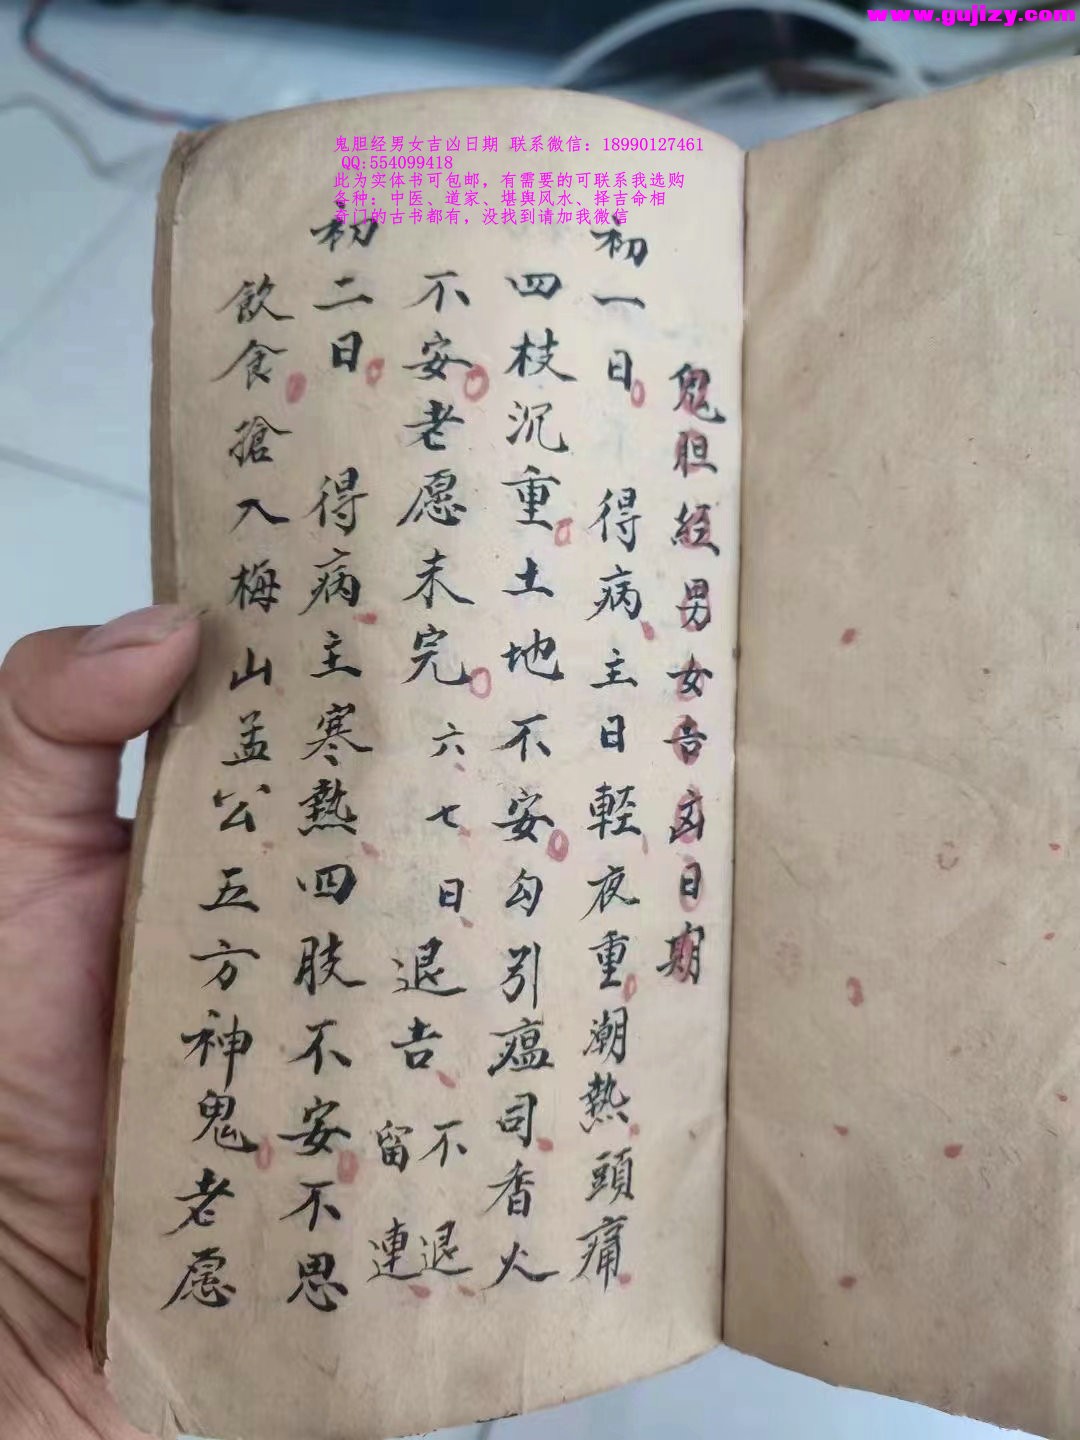 www.gujizy.com
鬼胆经男女吉凶日期 联系微信：18990127461
QQ:554099418
此为实体书可包邮，有需要的可联系我选购
各种：中医、道家、堪舆风水、择吉命相
奇门的古书都有，没找到请加我微信
鬼胆經男女吉凶日期
初一日 得病主日輕夜重潮熱頭痛
四枝沉重土地不安勾引瘟司香火
不安老愿未完 六七日退吉 不退留連
初二日 得病主寒熱四肢不安不思
飲食搶入梅山孟公五方神鬼老愿